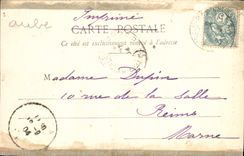 aube
Imprimé
CARTE POSTALE
Ce côté est exclusivement réservé à l'adresse
Madame Dupin
10 rue de la Salle
Reims
Marne